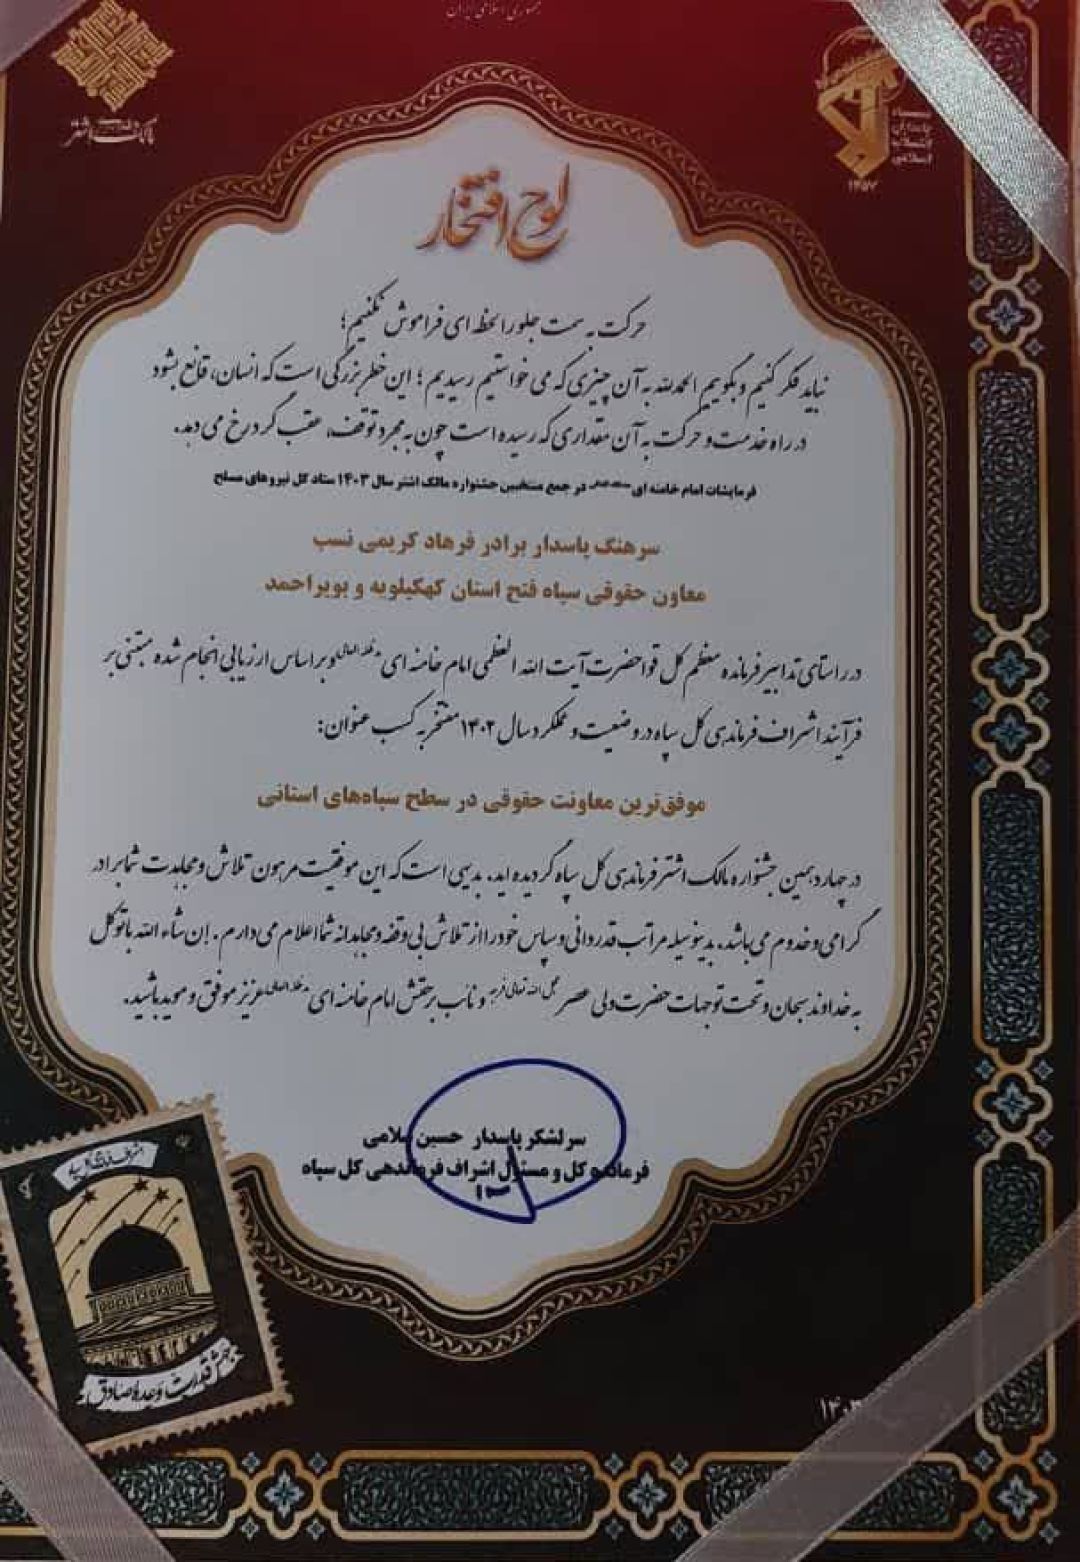 جمهوری اسلامی ایران
مالک اشتر
سپاه
پاسداران
انقلاب
اسلامی
۱۳۵۷
لوح افتخار
حرکت به سمت جلو را لحظه ای فراموش نکنیم؛
نباید فکر کنیم و بگوییم الحمدلله به آن چیزی که می خواستیم رسیدیم؛ این خطر بزرگی است که انسان، قانع بشود
در راه خدمت و حرکت به آن مقداری که رسیده است چون به مجرد توقف، عقب گرد رخ می دهد.
فرمایشات امام خامنه ای در جمع منتخبین جشنواره مالک اشتر سال ۱۴۰۳ ستاد کل نیروهای مسلح
سرهنگ پاسدار برادر فرهاد کریمی نسب
معاون حقوقی سپاه فتح استان کهکیلویه و بویراحمد
در راستای تدابیر فرمانده معظم کل قوا حضرت آیت الله العظمی امام خامنه ای مدظله العالی و بر اساس ارزیابی انجام شده مبتنی بر
فرآیند اشراف فرماندهی کل سپاه در وضعیت و عملکرد سال ۱۴۰۲ مفتخر به کسب عنوان:
موفق‌ترین معاونت حقوقی در سطح سپاه‌های استانی
در چهاردهمین جشنواره مالک اشتر فرماندهی کل سپاه گردیده اید. بدیهی است که این موفقیت مرهون تلاش و مجاهدت شما برادر
گرامی و خدوم می باشد. بدینوسیله مراتب قدردانی و سپاس خود را از تلاش بی وقفه و مجاهدانه شما اعلام می دارم. إن شاء الله با توکل
به خداوند سبحان و تحت توجهات حضرت ولی عصر عجل الله تعالی فرجه و نائب برحقش امام خامنه ای مدظله العالی عزیز موفق و موید باشید.
سرلشکر پاسدار حسین سلامی
فرمانده کل و مسئول اشراف فرماندهی کل سپاه
جهش قدرت وعده صادق